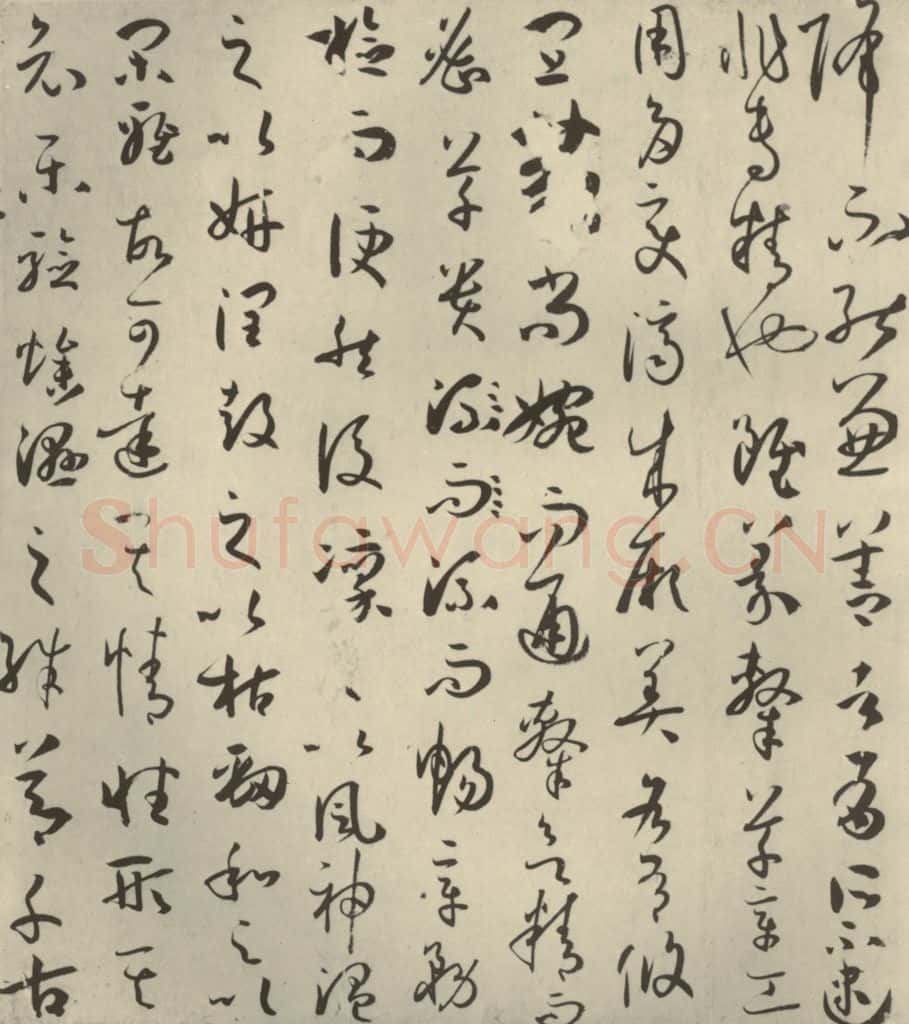 降不能兼善者有所不逮
非專精也雖篆隸草章工
用多變濟成厥美各有攸
宜篆尚婉而通隸欲精而
密草貴流而流而暢章務
檢而便然後凜之以風神溫
之以妍潤鼓之以枯勁和之以
閑雅故可達其情性形其
哀樂驗燥濕之殊節千古
Shufawang.CN